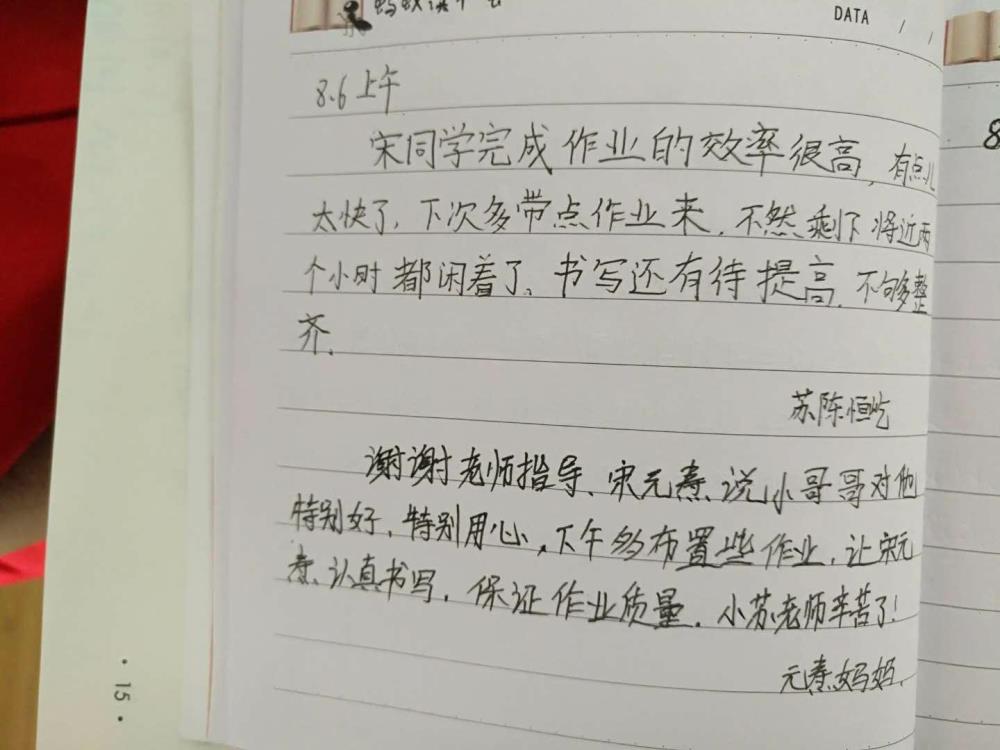 DATA / /
8.6 上午
宋同学完成作业的效率很高，有点儿
太快了，下次多带点作业来，不然剩下将近两
个小时都闲着了、书写还有待提高，不够整
齐.
苏陈恒屹
谢谢老师指导、宋元焘说小哥哥对他
特别好，特别用心，下午多布置些作业，让宋元
焘认真书写，保证作业质量，小苏老师辛苦了！
元焘妈妈.
8
· 15 ·